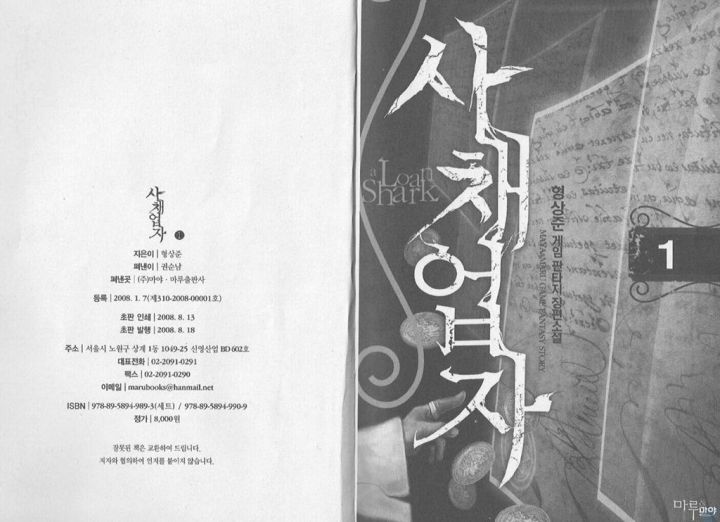 사채업자 1
지은이 | 형상준
펴낸이 | 권순남
펴낸곳 | (주)마야 · 마루출판사
등록 | 2008. 1. 7(제310-2008-00001호)
초판 인쇄 | 2008. 8. 13
초판 발행 | 2008. 8. 18
주소 | 서울시 노원구 상계 1동 1049-25 신영산업 BD 602호
대표전화 | 02-2091-0291
팩스 | 02-2091-0290
이메일 | marubooks@hanmail.net
ISBN | 978-89-5894-989-3(세트) / 978-89-5894-990-9
정가 | 8,000원
잘못된 책은 교환하여 드립니다.
저자와 협의하여 인지를 붙이지 않습니다.
사채업자
a Loan
Shark
형상준 게임 판타지 장편소설
MAYA&MARU GAME FANTASY STORY
1
마루
마야